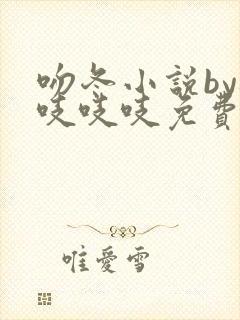 吻冬小說by
吱吱吱免費
唯愛雪